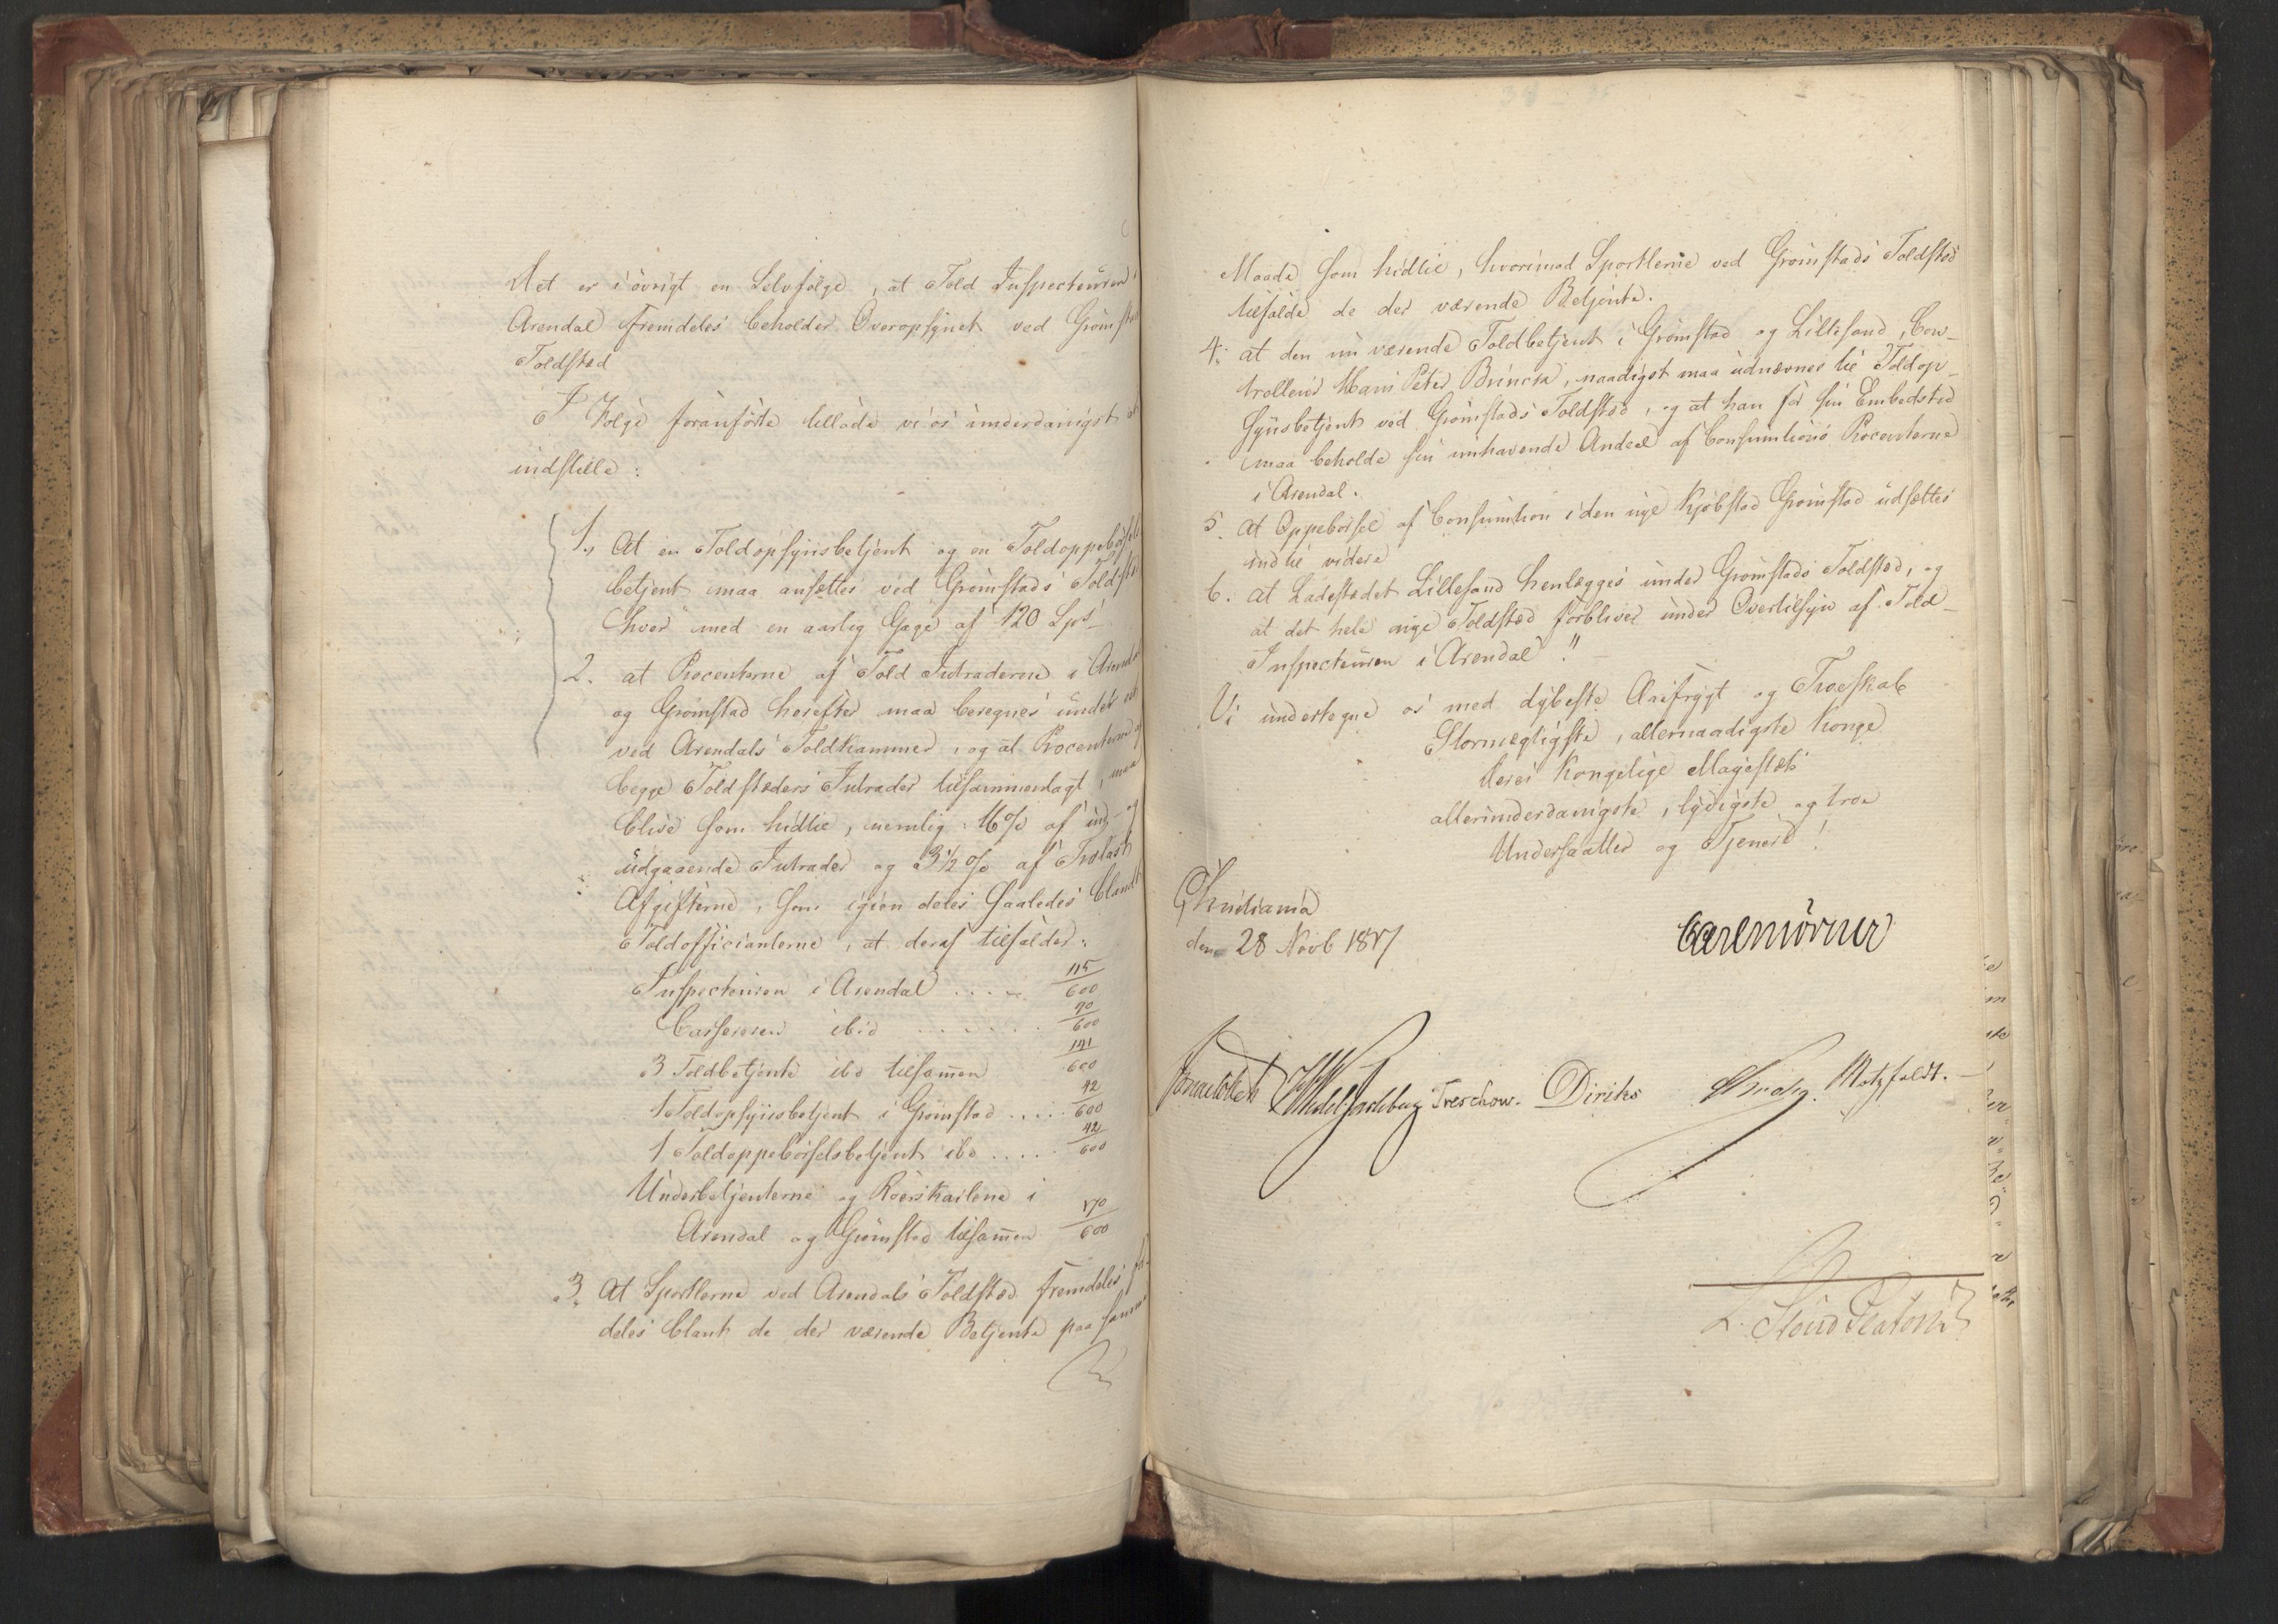 Det er i övrigt en Selvfølge, at Told Inspecteuren i
Arendal fremdeles beholder Overopsynet ved Grömstad
Toldsted
I Følge foranförte tillade vi os underdanigst at
indstille:
1., At en Toldopsynsbetjent og en Toldoppebörsels
betjent maa ansættes ved Grömstads Toldsted
hver med en aarlig Gage af 120 Sps
2. at Procenterne af Told Intraderne i Arendal
og Grömstad herefter maa beregnes under eet
ved Arendals Toldkammer, og at Procenterne af
begge Toldstæders Intrader tilsammenlagt, maa
blive som hidtil, nemlig 16% af ind- og
udgaaende Intrader og 3 1/2 % af Trælast
Afgifterne, som igien deles saaledes blandt
Toldofficianterne, at deraf tilfalder:
Inspecteuren i Arendal .... 115/600
Cassereren ibid ...... 90/600
3 Toldbetjente ibd tilsam̄en 141/600
1 Toldopsynsbetjent i Grömstad .... 42/600
1 Toldoppebörselsbetjent ibd ..... 42/600
Underbetjenterne og Roerskarlene i
Arendal og Grömstad tilsam̄en 170/600
3. At Sportlerne ved Arendals Toldsted fremdeles
deles blant de der værende Betjente paa samme
Maade som hidtil, hvorimod Sportlerne ved Grömstads Toldsted
tilfalde de der værende Betjente.
4. at den nu værende Toldbetjent i Grömstad og Lillesand, Con-
trolleur Hans Peter Brinck, naadigst maa udnævnes til Toldop-
synsbetjent ved Grömstads Toldsted, og at han for sin Embedstid
maa beholde sin innhavende Andeel af Consumtions Procenterne
i Arendal.
5. At Oppebörsel af Consumtion i den nye Kjöbstad Grömstad udsættes
indtil videre
6. at Ladestedet Lillesand henlægges under Grömstads Toldsted, og
at det hele nye Toldsted forbliver under Overtilsyn af Told-
Inspecteuren i Arendal."
Vi undertegne os med dybeste Ærefrygt og Troeskab
Stormægtigste, allernaadigste Konge
Deres Kongelige Majestæts
allerunderdanigste, lydigste og troe
Undersaatter og Tjenere!
Christiania
den 28 Novb 1817
Carl Mörner
Sommerhielm HWedel Jarlsberg Treschow. Diriks Krohg. Motzfeldt.
L. Stoud Platou